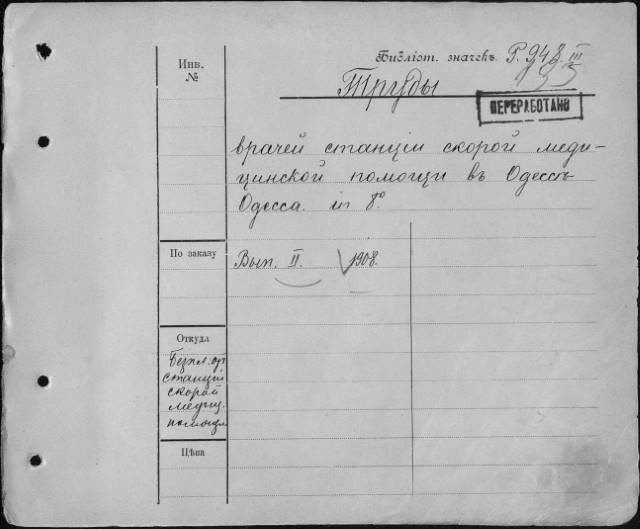 Библіот. значекъ P.948 III
135
Инв.
№
Труды
ПЕРЕРАБОТАНО
врачей станціи скорой меди-
цинской помощи въ Одессѣ
Одесса. in 8º
По заказу
Вып. II. 1908.
Откуда
Безпл. от
станціи
скорой
медиц.
помощи
Цѣна